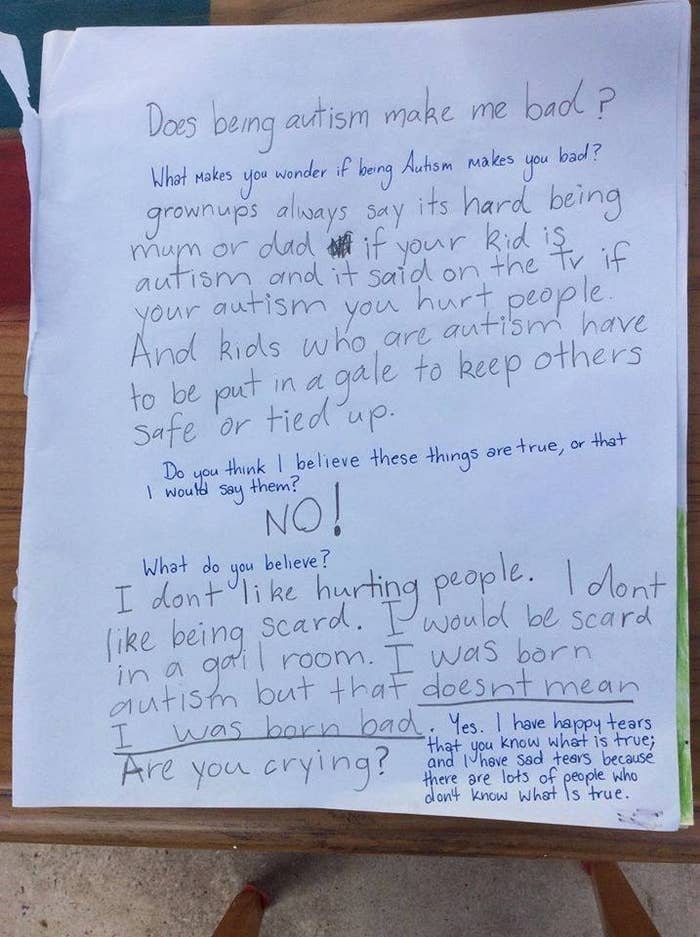 Does being autism make me bad?
What makes you wonder if being Autism makes you bad?
grownups always say its hard being
mum or dad if your kid is
autism and it said on the tv if
your autism you hurt people.
And kids who are autism have
to be put in a gale to keep others
safe or tied up.
Do you think I believe these things are true, or that
I would say them?
NO!
What do you believe?
I dont like hurting people. I dont
like being scard. I would be scard
in a gail room. I was born
autism but that doesnt mean
I was born bad.
Are you crying?
Yes. I have happy tears
that you know what is true;
and I have sad tears because
there are lots of people who
don't know what is true.